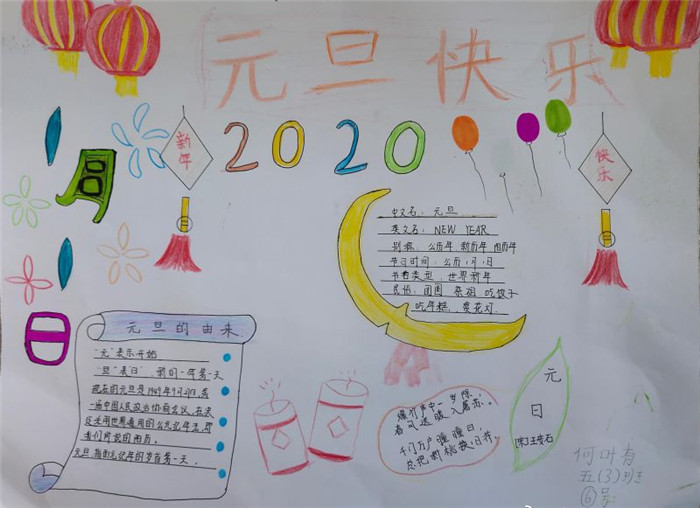 元旦快乐
1月1日
新年
2020
快乐
中文名：元旦
英文名：NEW YEAR
别称：公历年 新历年 阳历年
节日时间：公历1月1日
节日类型：世界新年
民俗：团圆 祭祖 吃饺子
吃年糕、赏花灯
元旦的由来
"元"表示开始
"旦"表日，新的一年第一天
现在的元旦是1949年9月27日，第
一届中国人民政治协商会议，在决
定采用世界通用的公元纪年法，即
我们所说的阳历。
元旦，指的公元纪年的岁首第一天。
爆竹声中一岁除，
春风送暖入屠苏。
千门万户曈曈日，
总把新桃换旧符。
元
日
[宋]王安石
何叶有
五(3)班
⑥号